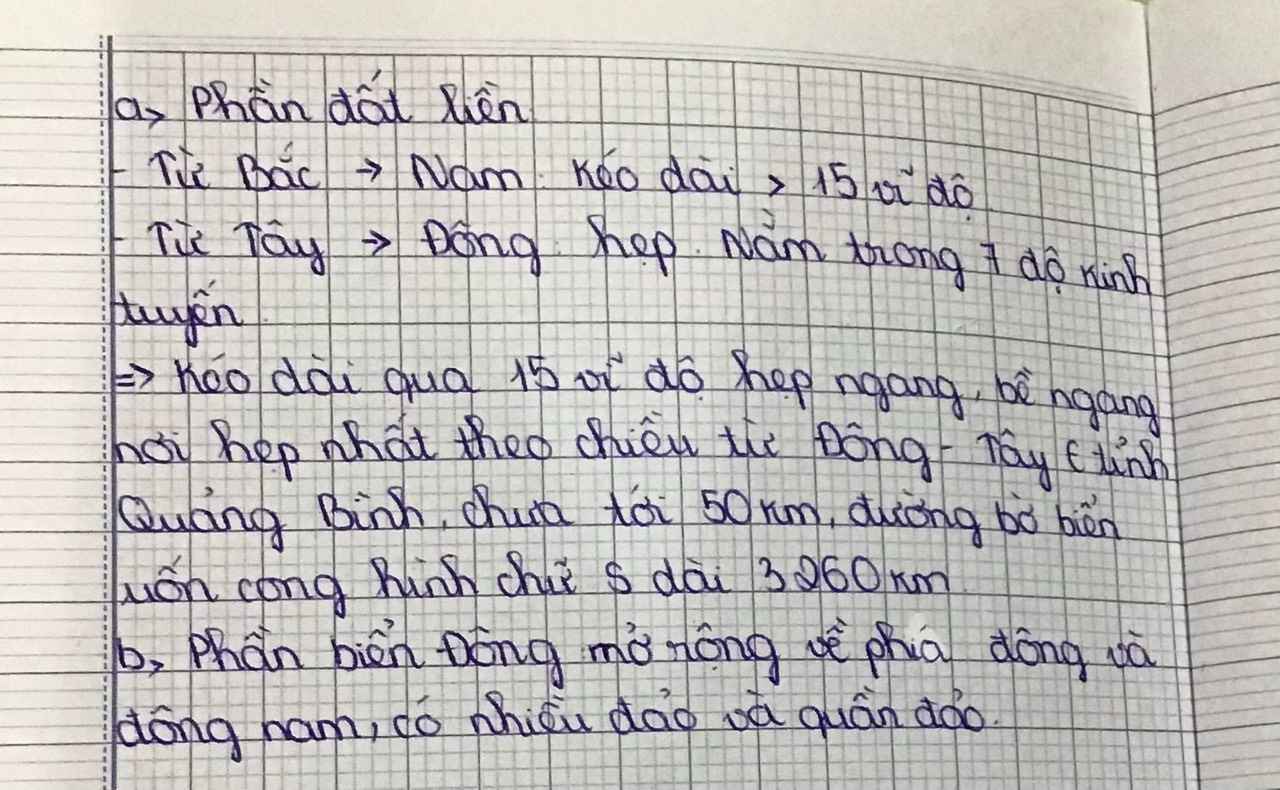 a, Phần đất liền
- Từ Bắc → Nam. Kéo dài > 15 vĩ độ
- Từ Tây → Đông. hẹp. Nằm trong 7 độ kinh
tuyến.
=> Kéo dài qua 15 vĩ độ hẹp ngang, bề ngang
nơi hẹp nhất theo chiều từ Đông - Tây (tỉnh
Quảng Bình, chưa tới 50 km, đường bờ biển
uốn cong hình chữ S dài 3260 km
b, Phần biển Đông mở rộng về phía đông và
đông nam, có nhiều đảo và quần đảo.